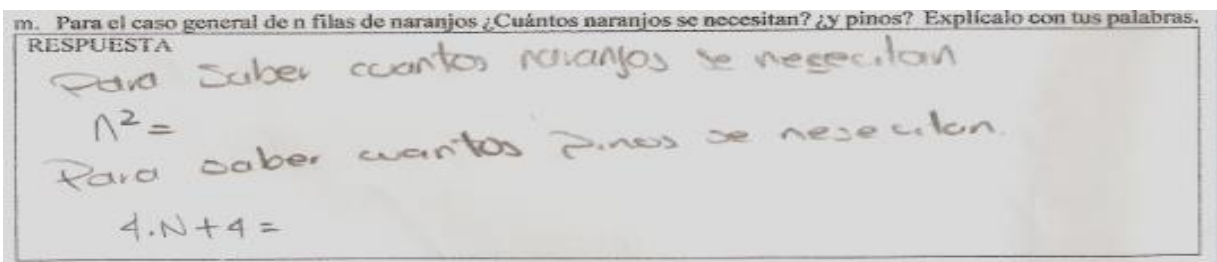 m. Para el caso general de n filas de naranjos ¿Cuántos naranjos se necesitan? ¿y pinos? Explícalo con tus palabras.
RESPUESTA
Para Saber cuantos naranjos se nesecitan
n² =
Para saber cuantos Pinos se nesecitan.
4.N+4=